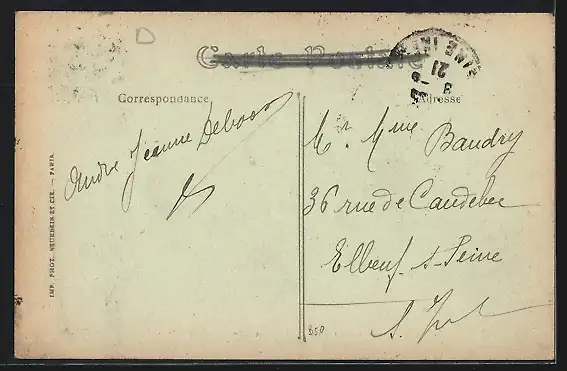 D
Carte Postale
Correspondance
Adresse
21
André Jeanne Debos
Mr Mme Baudry
36 rue de Caudebec
Elbeuf s- Seine
S. Inf
850
IMP. PHOT. NEURDEIN ET CIE. — PARIS